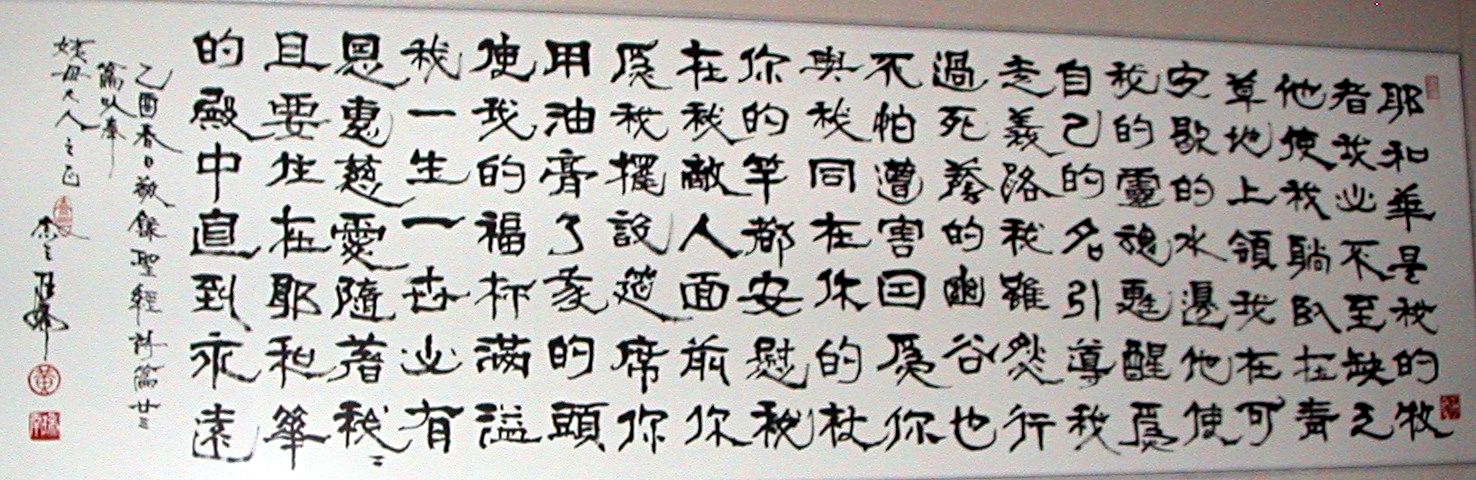 耶和華是我的牧
者我必不至缺乏
他使我躺臥在青
草地上領我在可
安歇的水邊他使
我的靈魂甦醒爲
自己的名引導我
走義路我雖然行
過死蔭的幽谷也
不怕遭害因爲你
與我同在你的杖
你的竿都安慰我
在我敵人面前你
爲我擺設筵席你
用油膏了我的頭
使我的福杯滿溢
我一生一世必有
恩惠慈愛隨著我〻
且要住在耶和華
的殿中直到永遠
乙酉春日敬錄聖經詩篇廿三
篇以奉
母大人之正